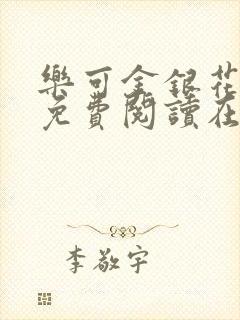 樂可金銀花
免費閱讀在
李敬宇